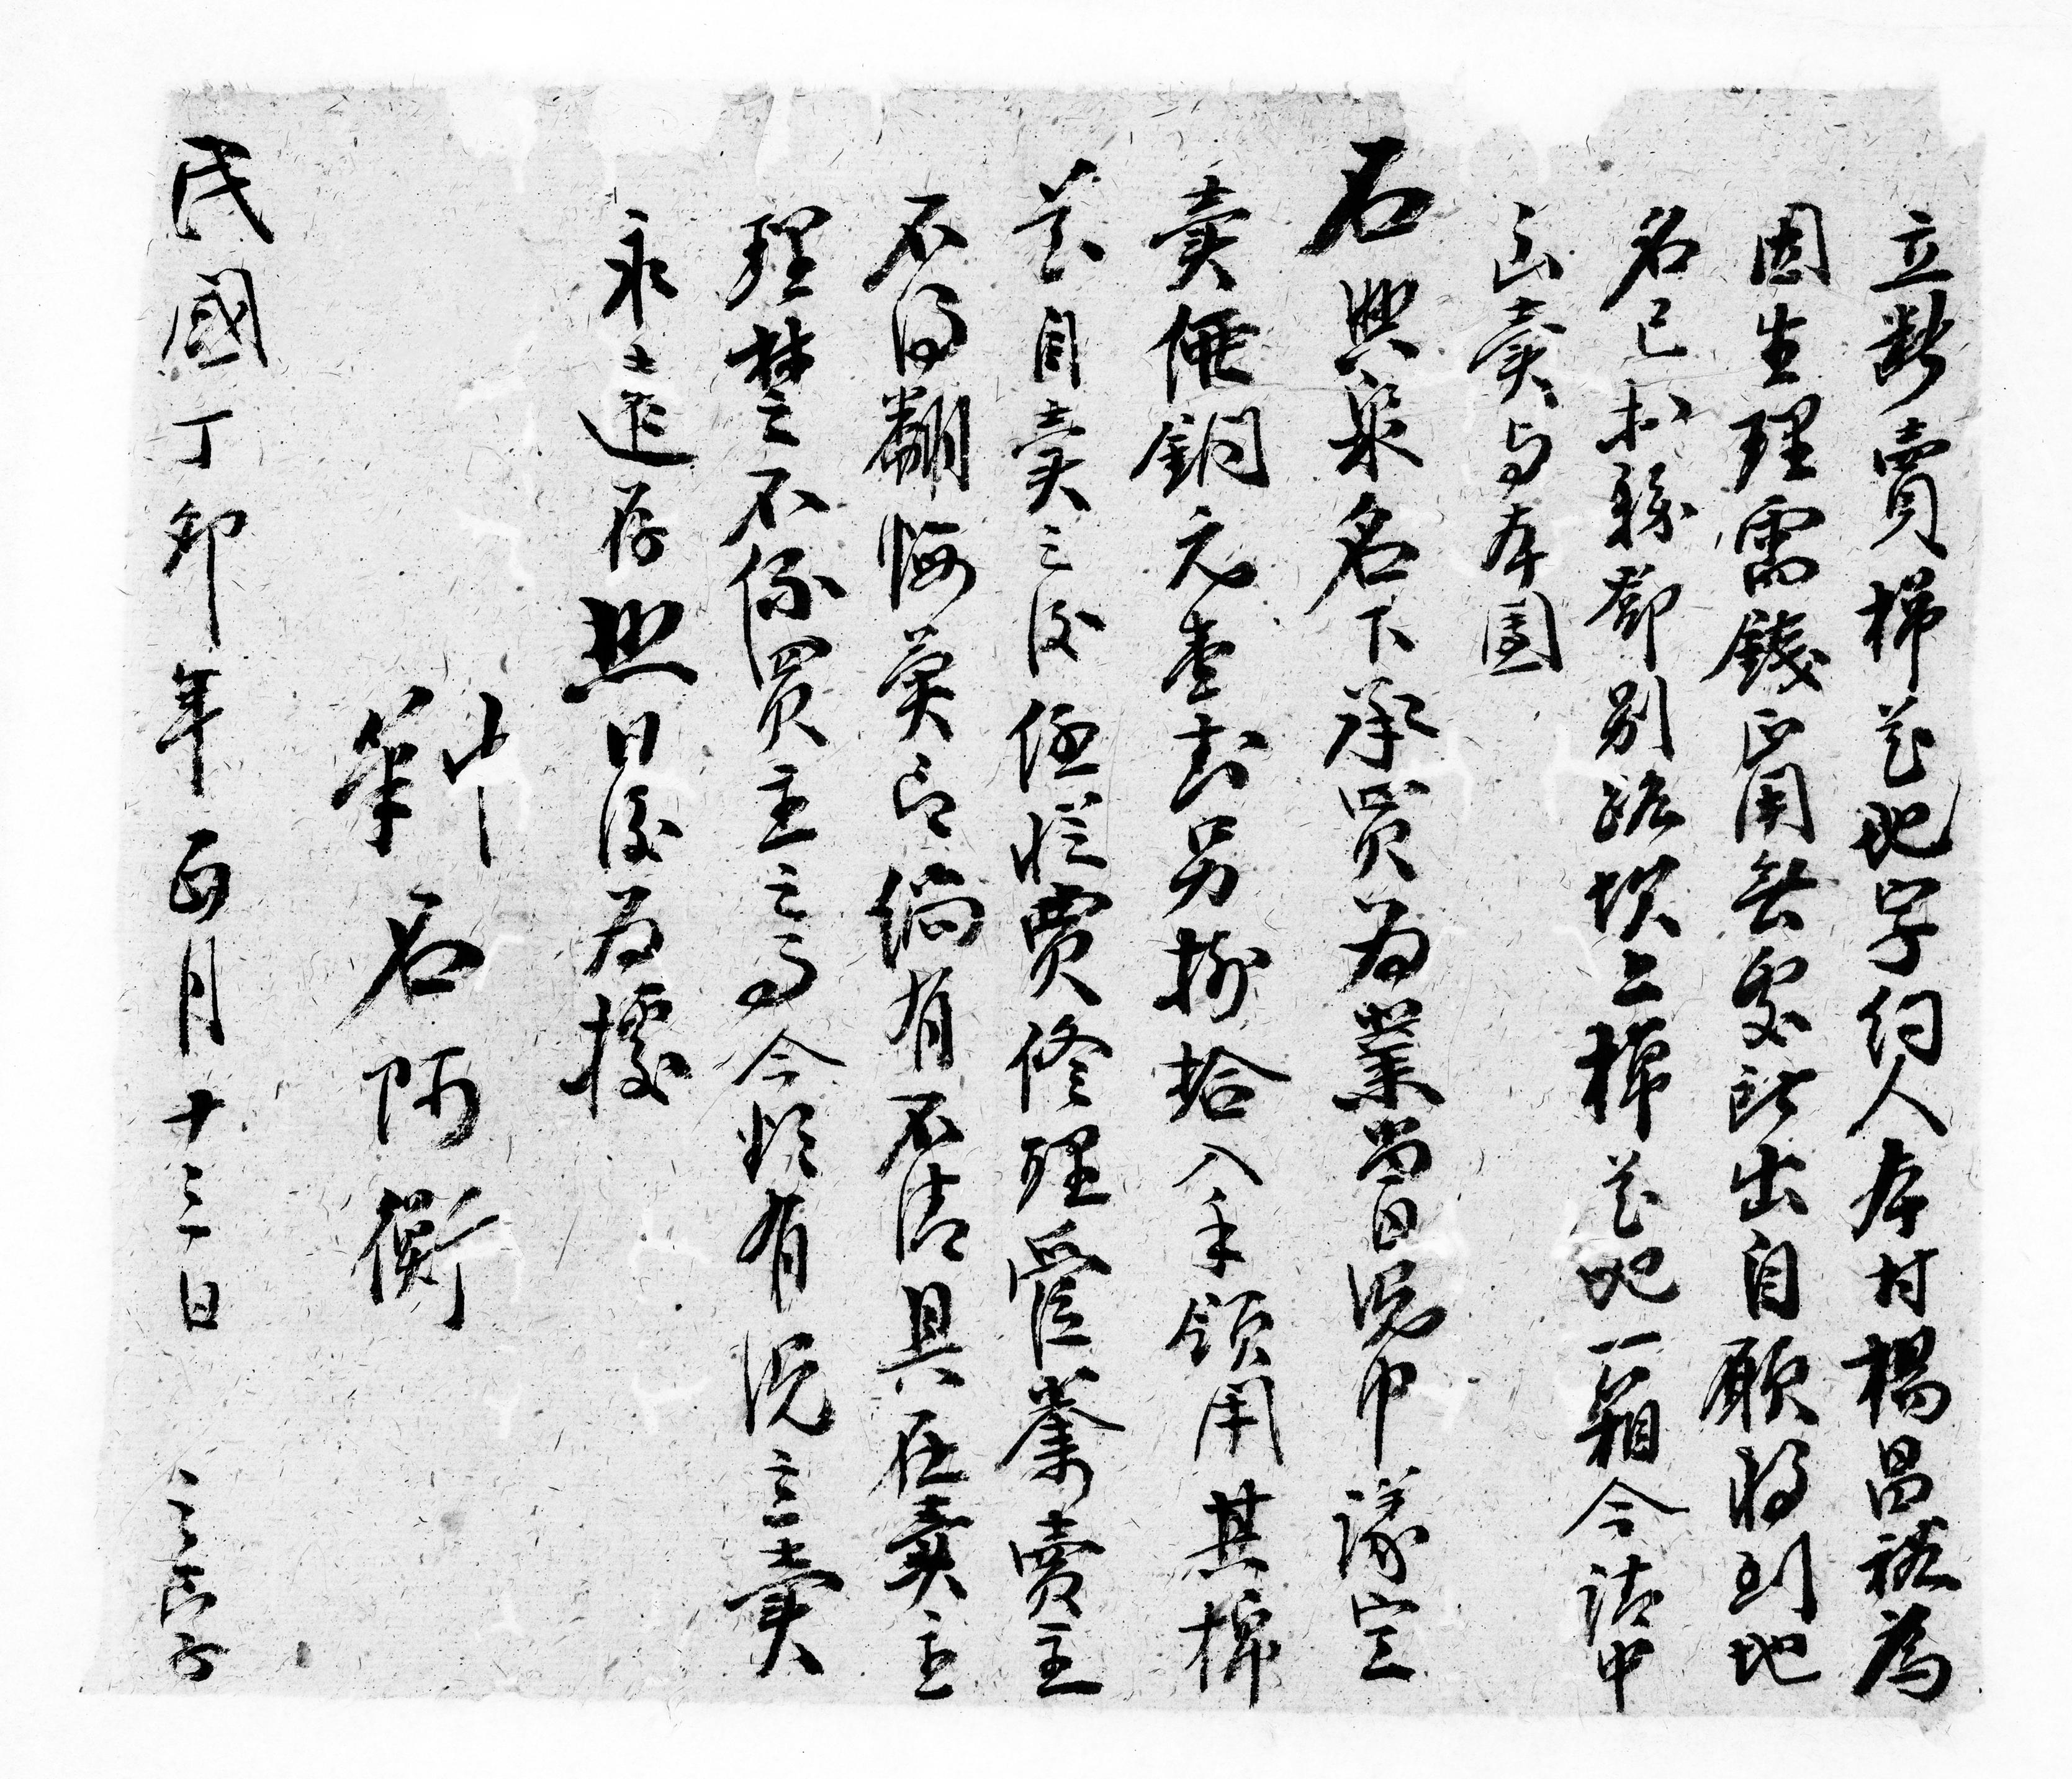 立断賣棉花地字约人本村楊昌裕為
因生理需錢正用無處所出自願将到地
名已松縣鄧别路坎上棉花地一箱今請中
立賣与本團
石興泉名下承買為業當日凭中議定
賣價銅元壹封另捌拾入手領用其棉
花自賣之後任憑買修理管業賣主
不得翻悔異言倘有不清具在賣主
理楚不係買主之事今欲有凭立賣
永遠存照日後為據
中
筆 石阿衡
民國丁卯年正月十三日 立字